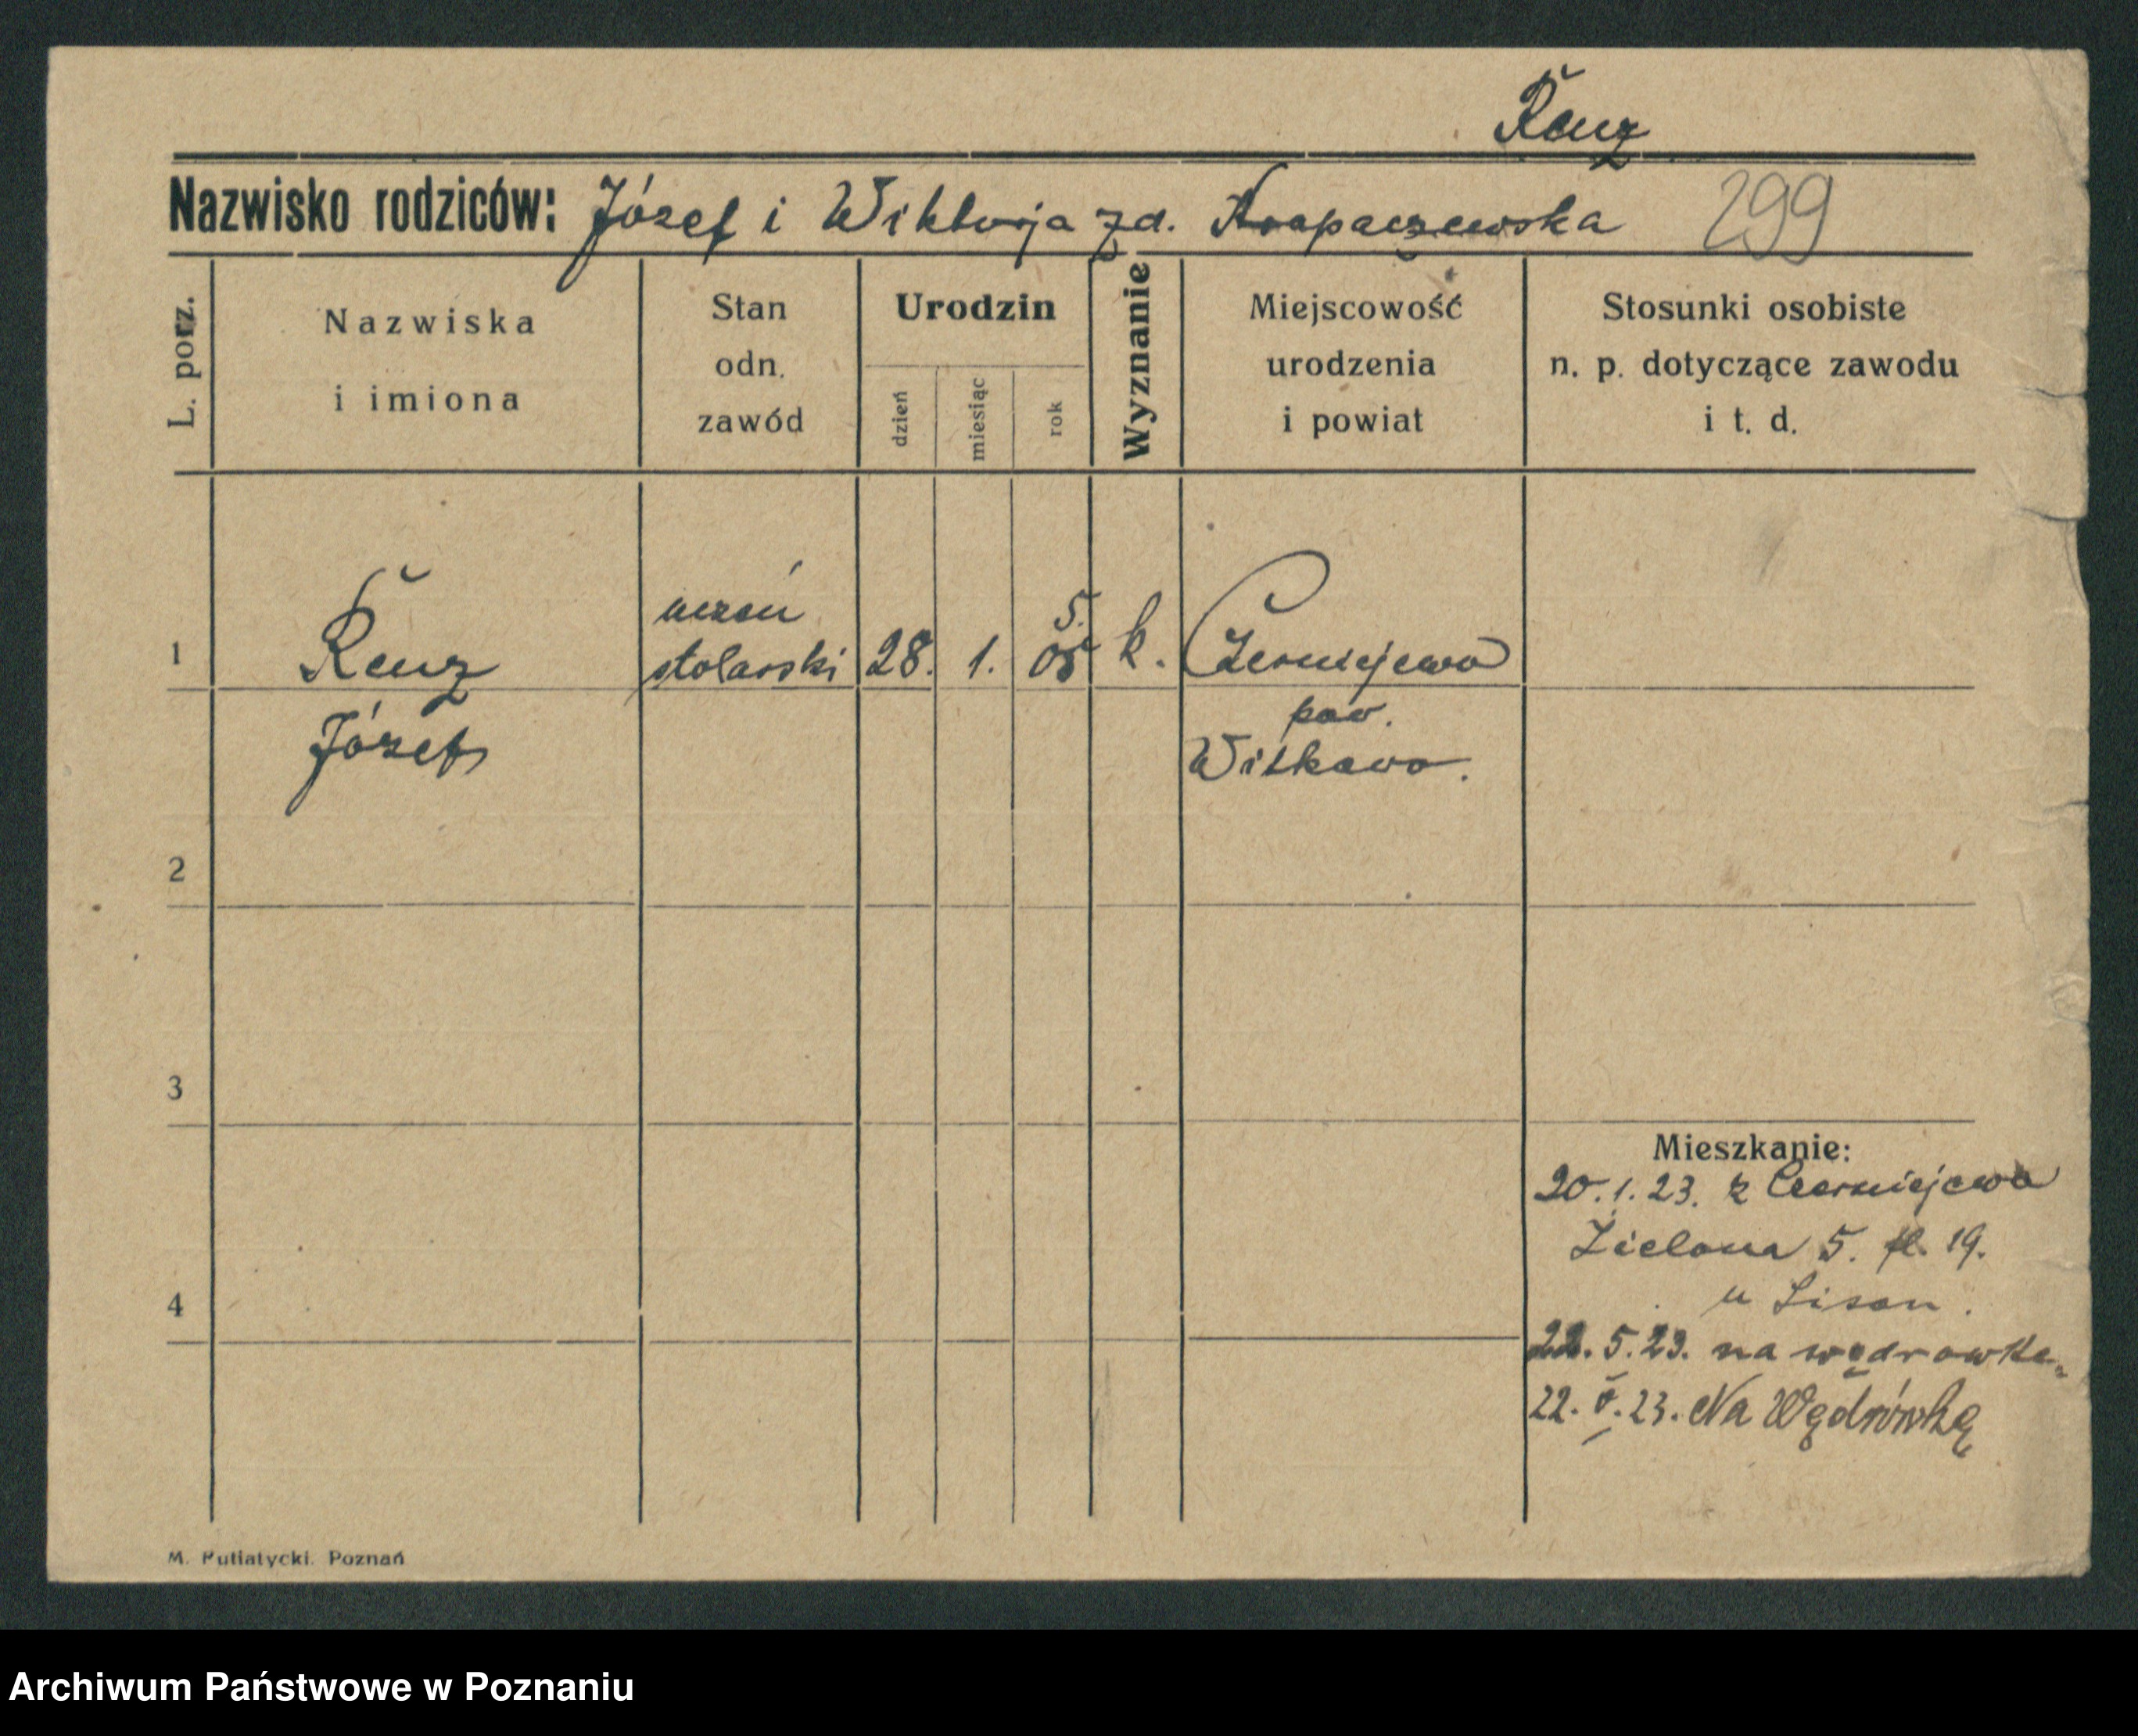 Renz
Nazwisko rodziców: Józef i Wiktorja zd. Knapaczewska 299
L. porz.
Nazwiska
i imiona
Stan
odn.
zawód
Urodzin
dzień
miesiąc
rok
Wyznanie
Miejscowość
urodzenia
i powiat
Stosunki osobiste
n. p. dotyczące zawodu
i t. d.
1
Renz
Józef
uczeń
stolarski
28.
1.
5.
05
k.
Czerniejewo
pow.
Witkowo.
2
3
4
Mieszkanie:
20.1.23. z Czerniejewa
Zielona 5. 19.
u
22.5.23. na wędrowkę
22.V.23. Na Wędrówkę
M. Putiatycki. Poznań
Archiwum Państwowe w Poznaniu